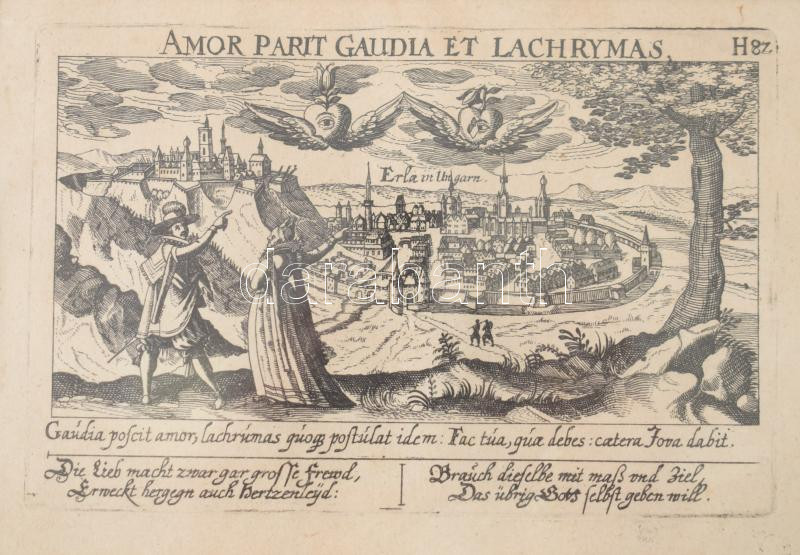 AMOR PARIT GAUDIA ET LACHRYMAS,
H 82.
Erla in Ungarn.
darabanth
Gaudia poscit amor, lachrumas quoq postulat idem: Fac tua, quæ debes: cætera Jova dabit.
Die Lieb macht zwar gar grosse frewd,
Erweckt hergegn auch hertzenleÿd:
Brauch dieselbe mit maß vnd Ziel,
Das übrig Gott selbst geben will.